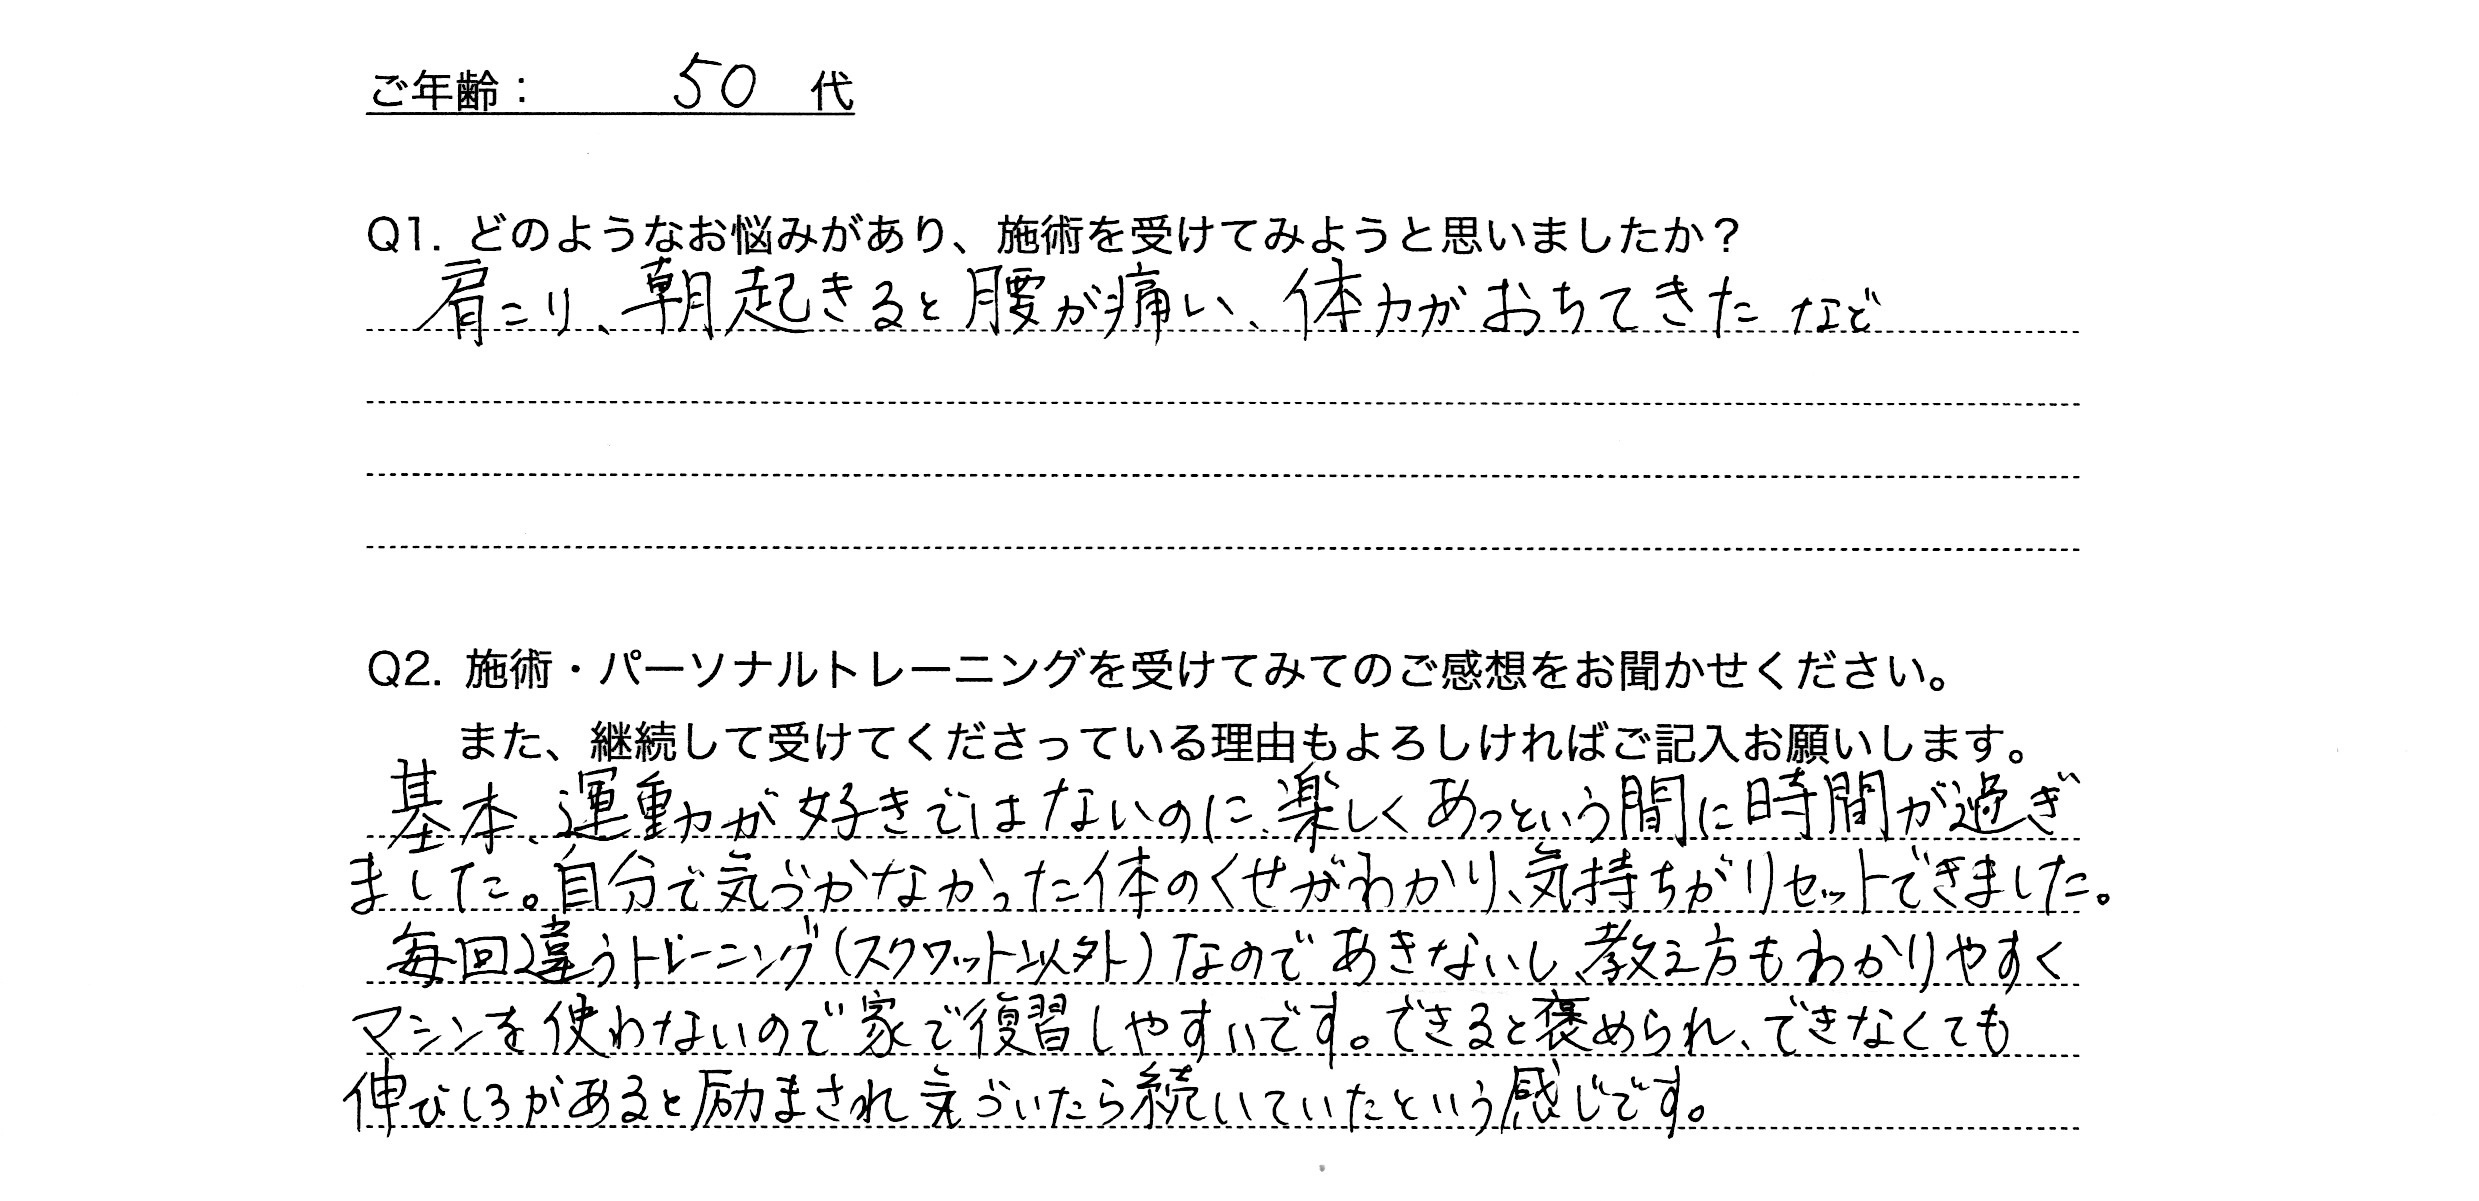 ご年齢： 50 代
Q1. どのようなお悩みがあり、施術を受けてみようと思いましたか？
肩こり、朝起きると腰が痛い、体力がおちてきた など
Q2. 施術・パーソナルトレーニングを受けてみてのご感想をお聞かせください。
また、継続して受けてくださっている理由もよろしければご記入お願いします。
基本、運動が好きではないのに、楽しくあっという間に時間が過ぎ
ました。自分で気づかなかった体のくせがわかり、気持ちがリセットできました。
毎回違うトレーニング（スクワット以外）なのであきないし、教え方もわかりやすく
マシンを使わないので家で復習しやすいです。できると褒められ、できなくても
伸びしろがあると励まされ気づいたら続いていたという感じです。